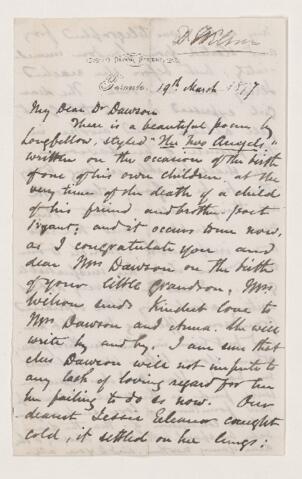 D. Wilson
Toronto 19th March 1877
My Dear Dr Dawson
There is a beautiful poem by
Longfellow, styled "The Two Angels,"
written on the occasion of the birth
of one of his own children, at the
very time of the death of a child
of his friend and brother-poet
; and it occurs to me now,
as I congratulate you and
dear Mrs Dawson on the birth
of your little Grandson, Mrs
Wilson sends kindest love to
Mrs Dawson and Anna. She will
write by and by. I am sure that
Dawson will not impute to
any lack of loving regard for her
her failing to do so now. Our
dearest Jessie Eleanor caught
cold, it settled on her lungs;